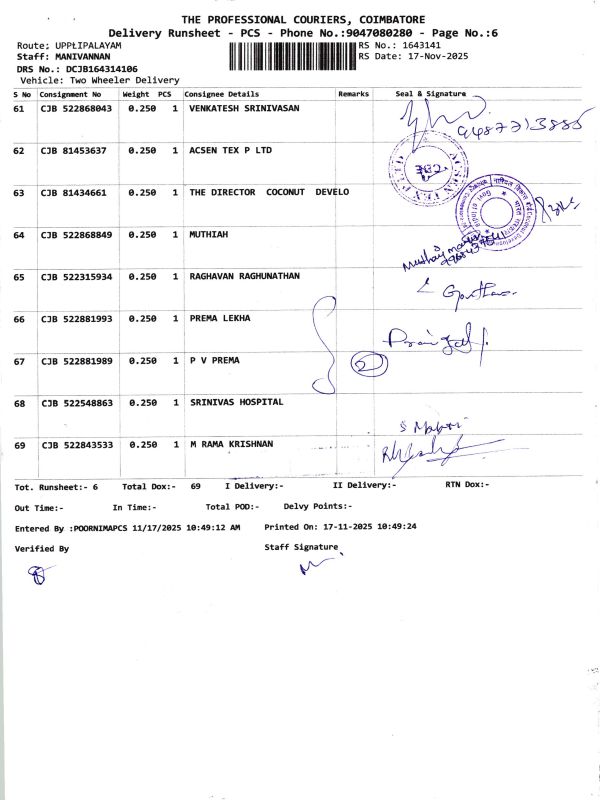 THE PROFESSIONAL COURIERS, COIMBATORE
Delivery Runsheet - PCS - Phone No.:9047080280 - Page No.:6
Route; UPPLIPALAYAM RS No.: 1643141
Staff: MANIVANNAN RS Date: 17-Nov-2025
DRS No.: DCJB164314106
Vehicle: Two Wheeler Delivery
S No Consignment No Weight PCS Consignee Details Remarks Seal & Signature
61 CJB 522868043 0.250 1 VENKATESH SRINIVASAN
9487713885
62 CJB 81453637 0.250 1 ACSEN TEX P LTD
382
63 CJB 81434661 0.250 1 THE DIRECTOR COCONUT DEVELO
64 CJB 522868849 0.250 1 MUTHIAH
65 CJB 522315934 0.250 1 RAGHAVAN RAGHUNATHAN
66 CJB 522881993 0.250 1 PREMA LEKHA
67 CJB 522881989 0.250 1 P V PREMA
2
68 CJB 522548863 0.250 1 SRINIVAS HOSPITAL
69 CJB 522843533 0.250 1 M RAMA KRISHNAN
Tot. Runsheet:- 6 Total Dox:- 69 I Delivery:- II Delivery:- RTN Dox:-
Out Time:- In Time:- Total POD:- Delvy Points:-
Entered By :POORNIMAPCS 11/17/2025 10:49:12 AM Printed On: 17-11-2025 10:49:24
Verified By Staff Signature